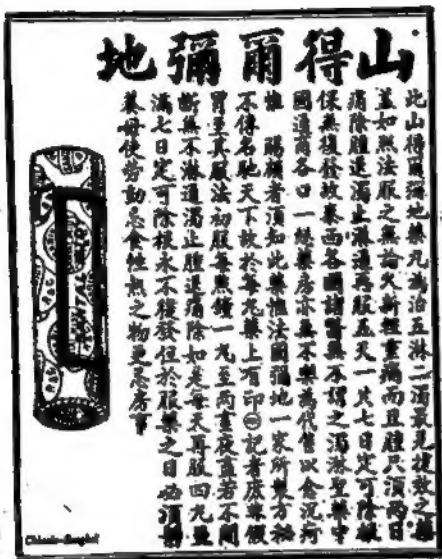 山得爾彌地
此山得爾彌地藥丸為治五淋二濁最見捷效之
蓋如照法服之無論久新輕重痛而且腫只須兩日
痛除腫退濁止淋通再服五天一共七日定可除根
保無復發故泰西各國諸醫無不謂之濁淋聖藥中
國通商各口一經藥房亦無不樂為代售以念沉疴
惟 賜顧者須知此藥惟法國彌地一家所製方
不得名馳天下故於每丸藥上有印記者庶無假
冒至其服法初服每點鐘一丸至兩晝夜直若不間
斷無不淋通濁止腫退痛除如是每天再服四丸至
滿七日定可除根永不復發但於服藥之日必須靜
養毋使勞動忌食性熱之物更忌房事
SANTAL MIDY